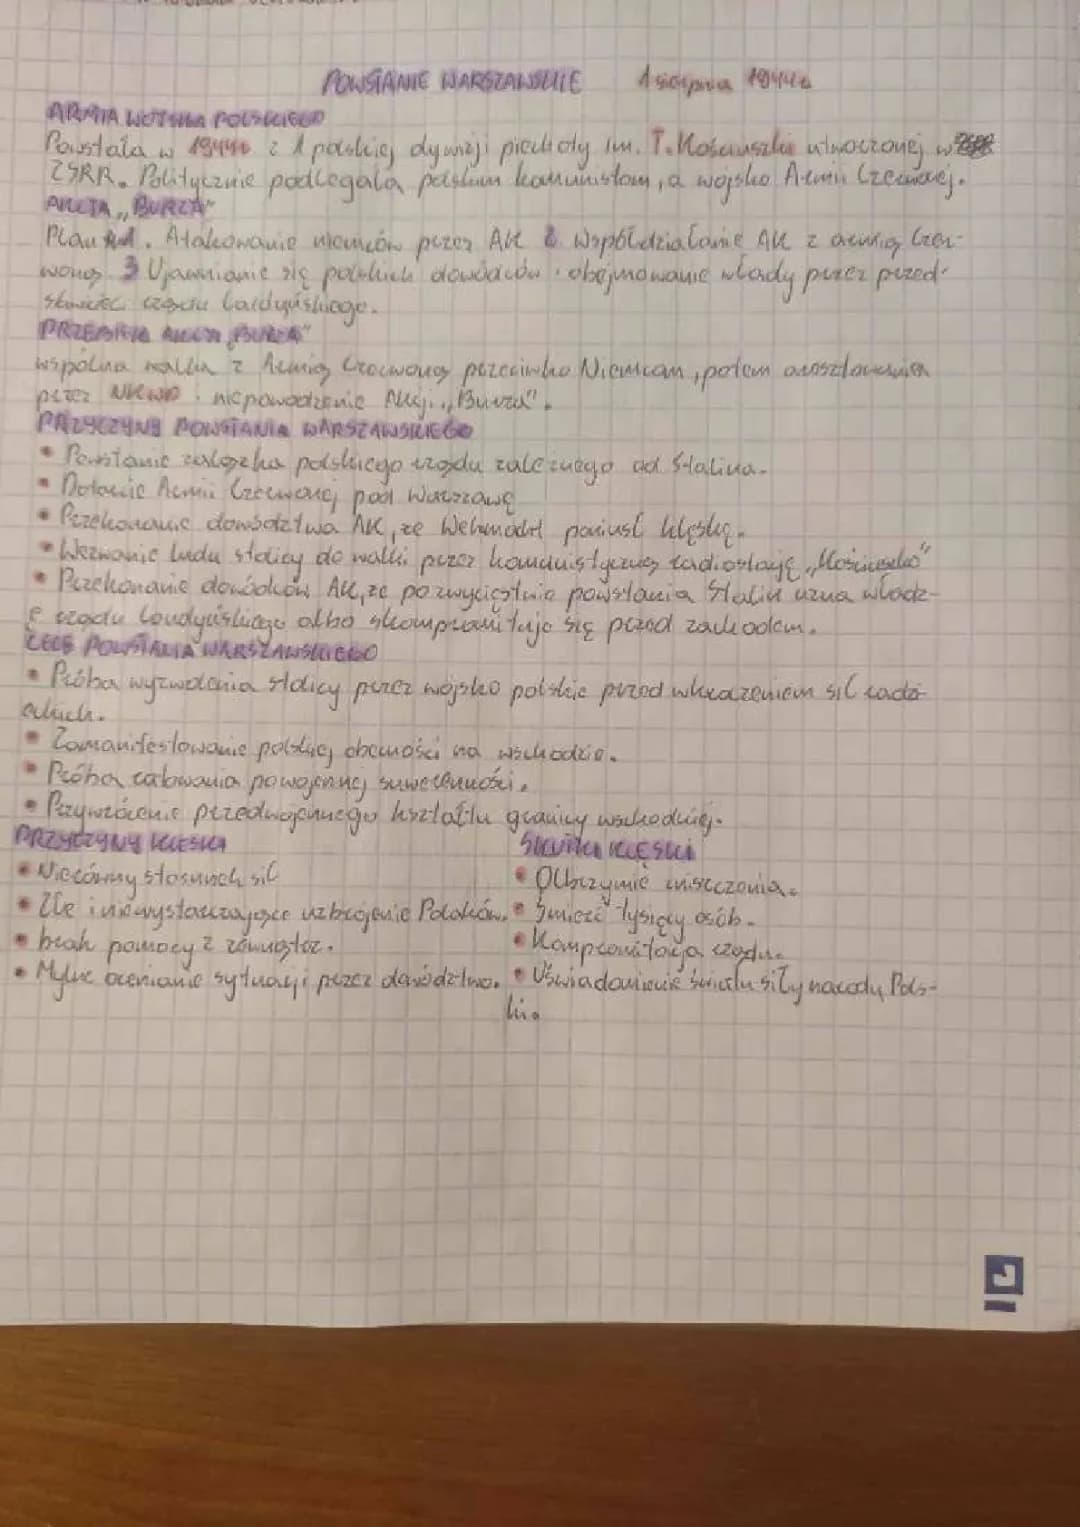 POWSTANIE WARSZAWSKIE 1 sierpnia 1944r
ARMIA WOJSKA POLSKIEGO
Powstała w 1944r z 1 polskiej dywizji piechoty im. T. Kościuszki utworzonej w
ZSRR. Politycznie podlegała polskim komunistom, a wojsko Armii Czerwonej.
AKCJA „BURZA"
Plan 1. Atakowanie niemców przez AK 2 Współdziałanie AK z armią Czer-
woną 3 Ujawnianie się polskich dowódców i obejmowanie władzy przez przed-
stawicieli rządu Londyńskiego.
PRZEBIEG AKCJI „BURZA"
wspólna walka z Armią Czerwoną przeciwko Niemcom, potem aresztowania
przez NKWD i niepowodzenie Akcji „Burza".
PRZYCZYNY POWSTANIA WARSZAWSKIEGO
• Powstanie zalążka polskiego rządu zależnego od Stalina.
• Dotarcie Armii Czerwonej pod Warszawę
• Przekonanie dowództwa AK, że Wehrmacht poniósł klęskę.
• Wezwanie ludu stolicy do walki przez komunistyczną radiostację „Kościuszko"
• Przekonanie dowódców AK, że po zwycięstwie powstania Stalin uzna władz-
ę rządu londyńskiego albo skompromituje się przed zachodem.
CELE POWSTANIA WARSZAWSKIEGO
• Próba wyzwolenia stolicy przez wojsko polskie przed wkroczeniem sił radzi-
eckich.
• Zamanifestowanie polskiej obecności na wschodzie.
• Próba ratowania powojennej suwerenności.
• Przywrócenie przedwojennego kształtu granicy wschodniej.
PRZYCZYNY KLĘSKI
• Nierówny stosunek sił
• Złe i niewystarczające uzbrojenie Polaków.
• brak pomocy z zewnątrz.
• Mylne ocenianie sytuacji przez dowództwo.
SKUTKI KLĘSKI
• Olbrzymie zniszczenia.
• Śmierć tysięcy osób.
• Kompromitacja rządu.
• Uświadomienie światu siły narodu Pols-
ki.